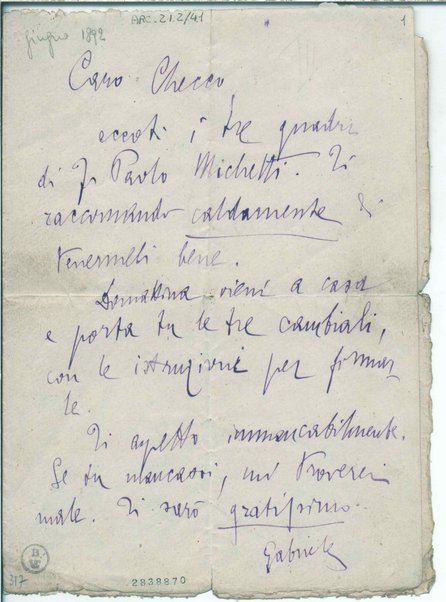 ARC.21.2/41
1
giugno 1892
Caro Checco,
eccoti i tre quadri
di F. Paolo Michetti. Ti
raccomando caldamente di
tenermeli bene.
Domattina vieni a casa
e porta tu le tre cambiali,
con le istruzioni per firmar
le.
Ti aspetto immancabilmente.
Se tu mancassi, mi troverei
male. Ti sarò gratissimo.
Gabriele
317
2838870